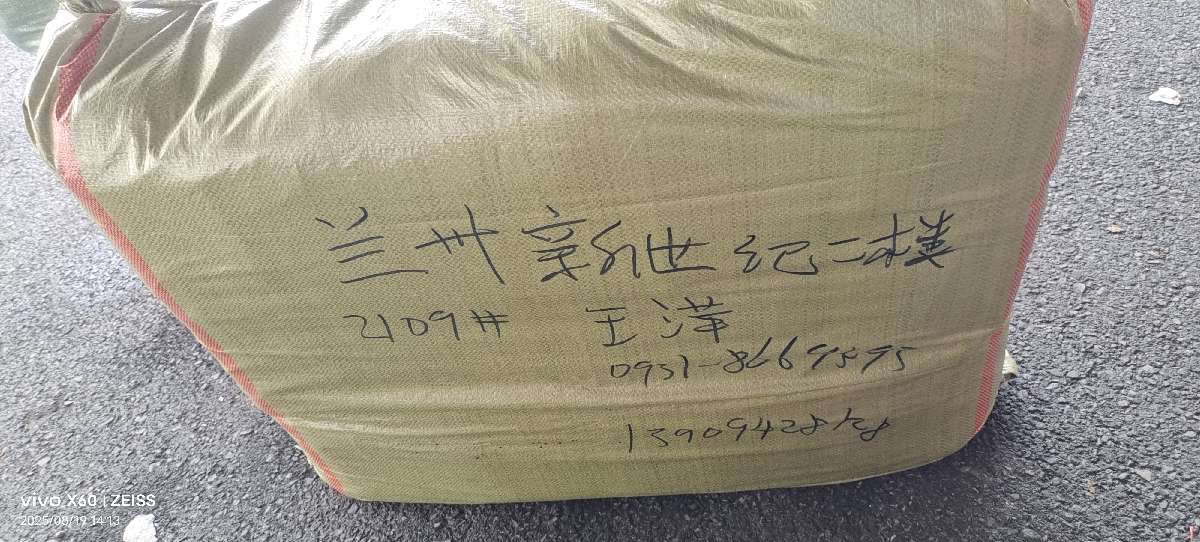 兰州新世纪二楼
2109# 王萍
0931-8669595
13909428128
vivo X60 | ZEISS
2025/08/19 14:13